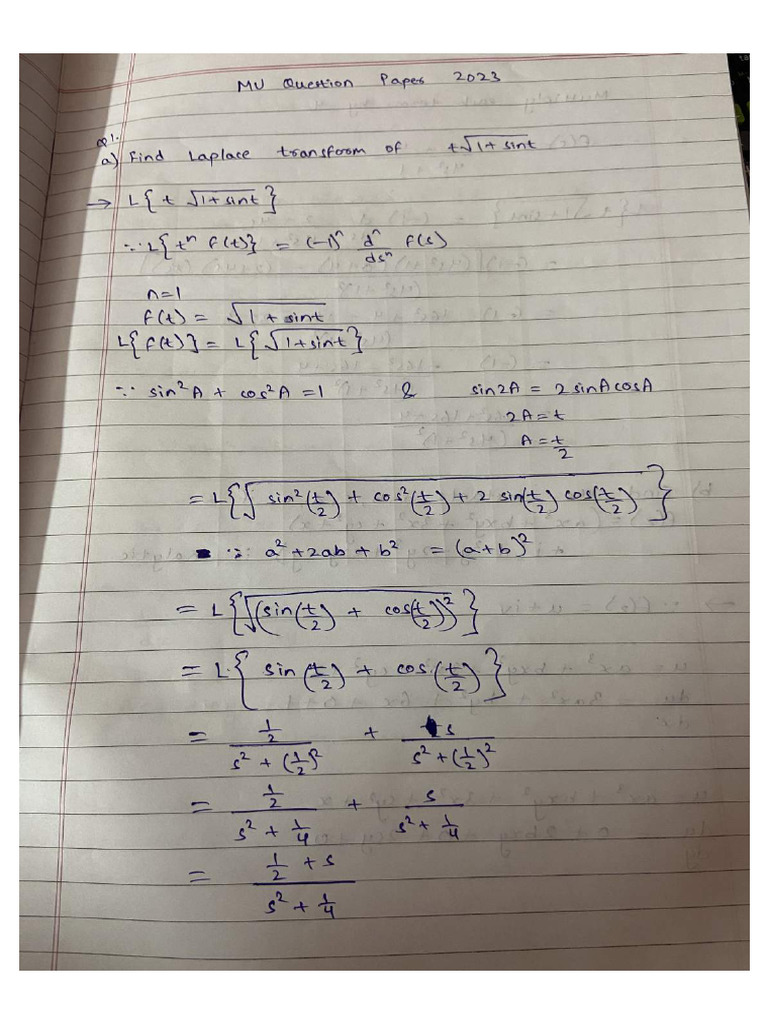 MU Question Paper 2023
Q1.
a) Find Laplace transform of t√(1+sint)
→ L{t √(1+sint)}
∵ L{tⁿ f(t)} = (-1)ⁿ dⁿ/dsⁿ f(s)
n=1
f(t) = √(1+sint)
L{f(t)} = L{√(1+sint)}
∵ sin²A + cos²A = 1 & sin2A = 2sinAcosA
2A = t
A = t/2
= L{√(sin²(t/2) + cos²(t/2) + 2 sin(t/2) cos(t/2))}
∵ a² + 2ab + b² = (a+b)²
= L{√(sin(t/2) + cos(t/2))²}
= L{sin(t/2) + cos(t/2)}
= (1/2)/(s² + (1/2)²) + s/(s² + (1/2)²)
= (1/2)/(s² + 1/4) + s/(s² + 1/4)
= (1/2 + s)/(s² + 1/4)